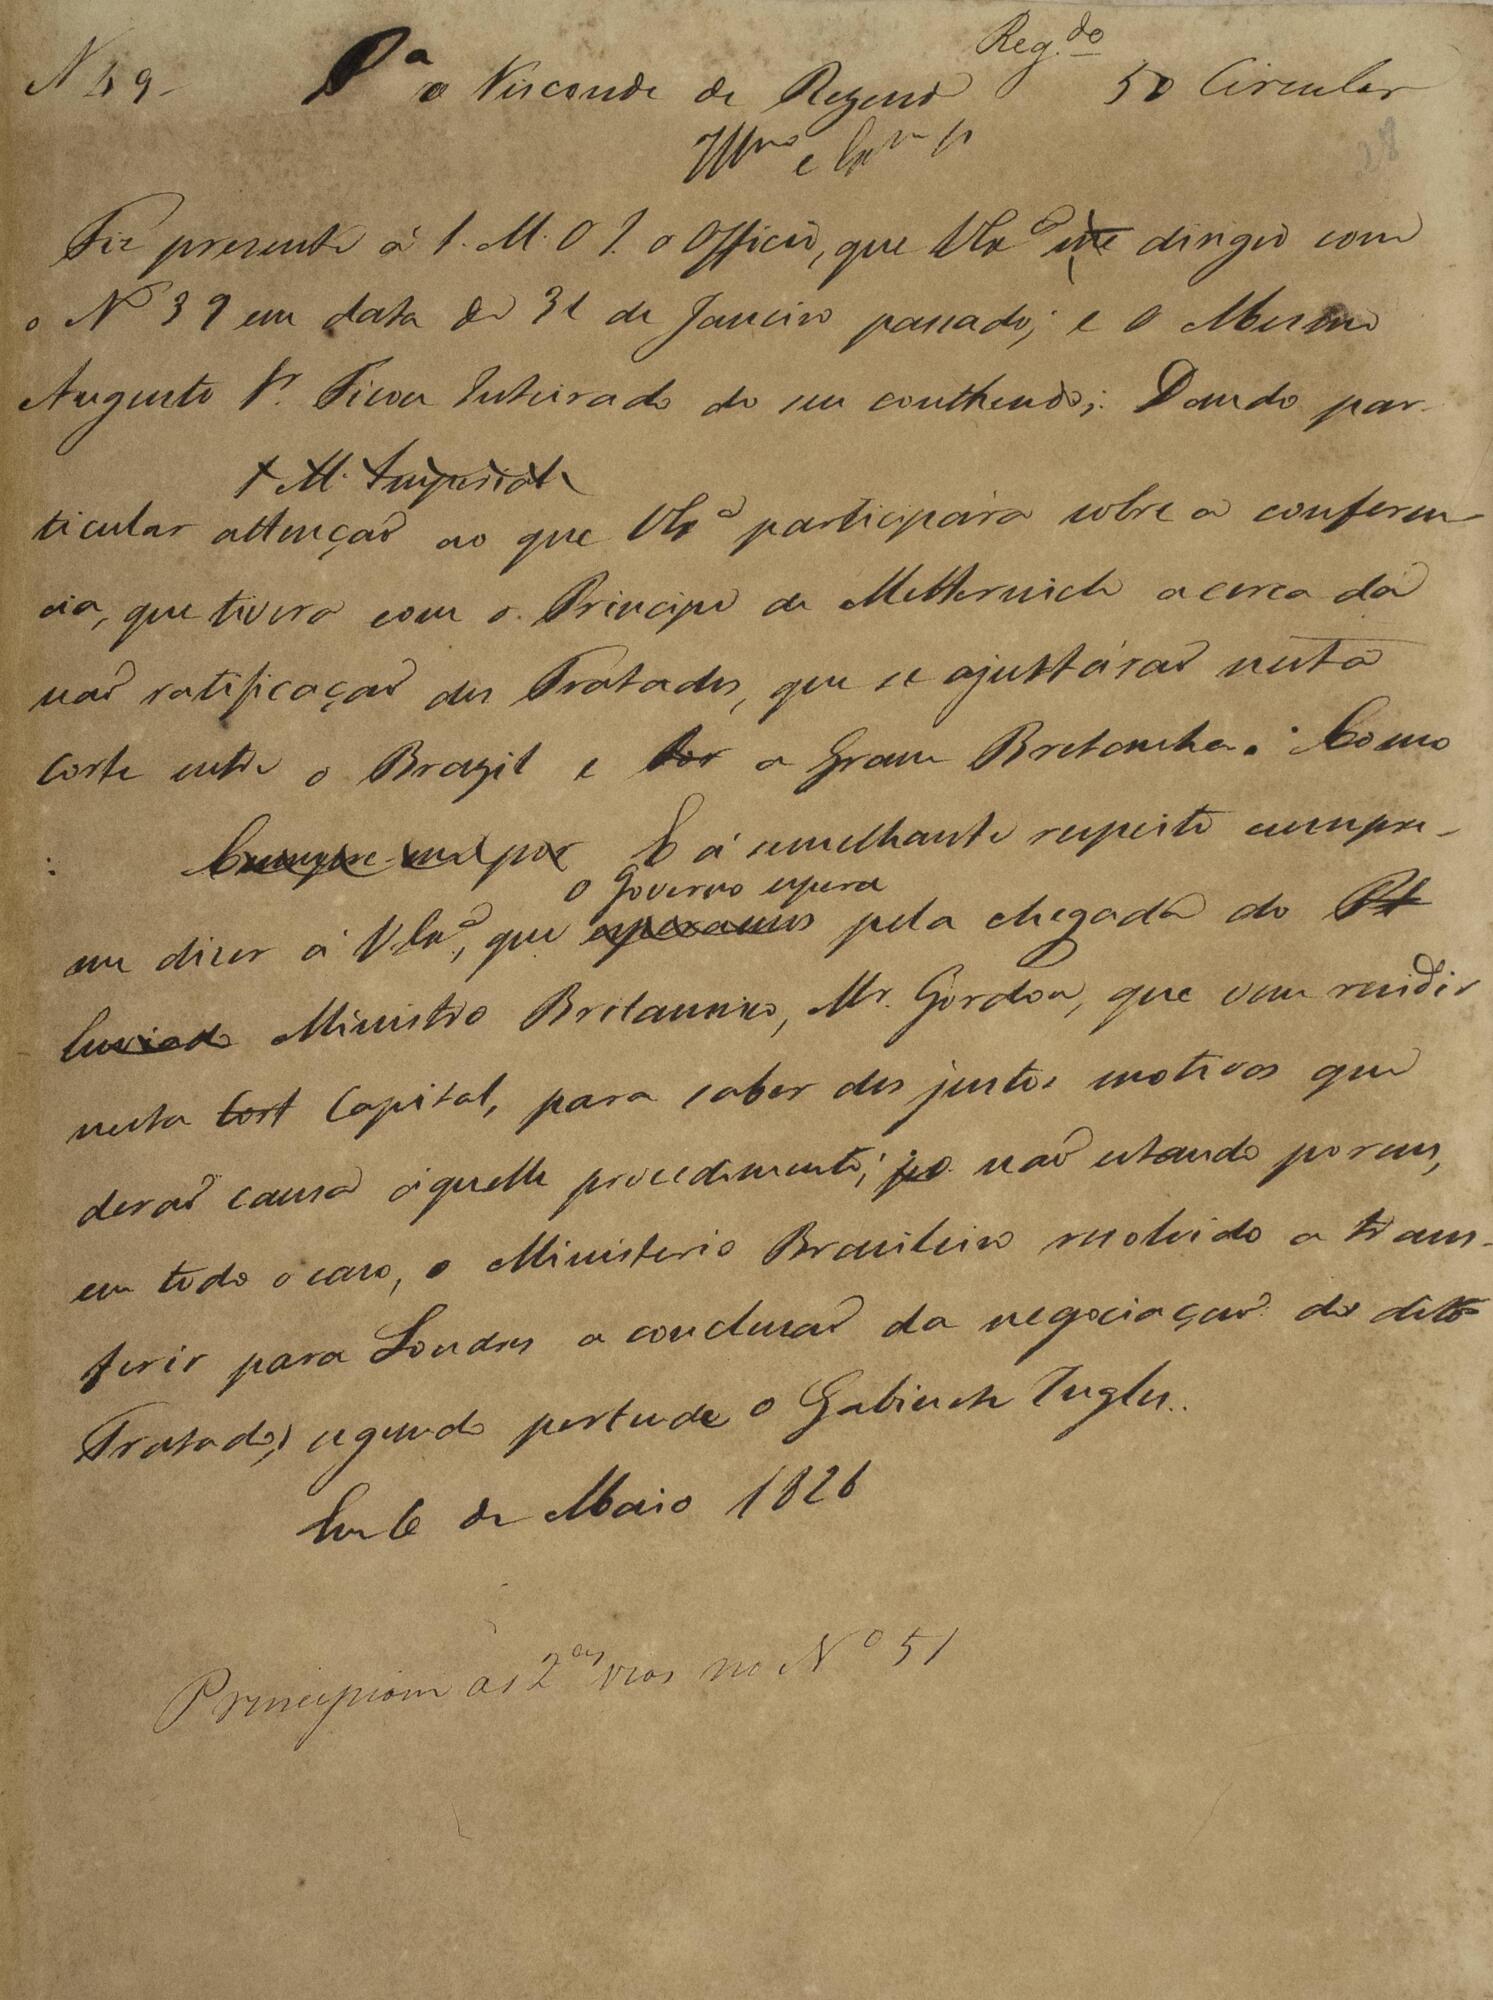 N 49 - Pª o Visconde de Rezende Reg.do 50 Circular
28
Illmo e Exmo Sr
Fiz presente á S. M. O I. o Officio, que VExª me dirigio com
o Nº 39 em data de 31 de Janeiro passado; e O Mesmo
Augusto Sr. Ficou Inteirado do seu contheudo; Dando par-
S M. Imperial
ticular attençaõ ao que VExª participára sobre a conferen-
cia, que tivera com o Principe de Metternich acerca da
naõ ratificaçaõ dos Tratados, que se ajustáraõ nesta
Corte entre o Brazil e a Gram Bretanha. Como
: Cumpre-me por E á semelhante respeito cumpre-
o Governo espera
me dizer á VExª, que esperamos pela chegada do
Enviado Ministro Britannico, Mr. Gordon, que vem residir
nesta Cort Capital, para saber dos justos motivos que
deraõ causa áquelle procedimento; naõ estando porem,
em todo o caso, o Ministerio Brasileiro resolvido a trans-
ferir para Londres a conclusaõ da negociaçaõ dos dittos
Tratados, segundo pertende o Gabinete Inglez.
Em 6 de Maio 1826
Principiam as 2as vias no Nº 51